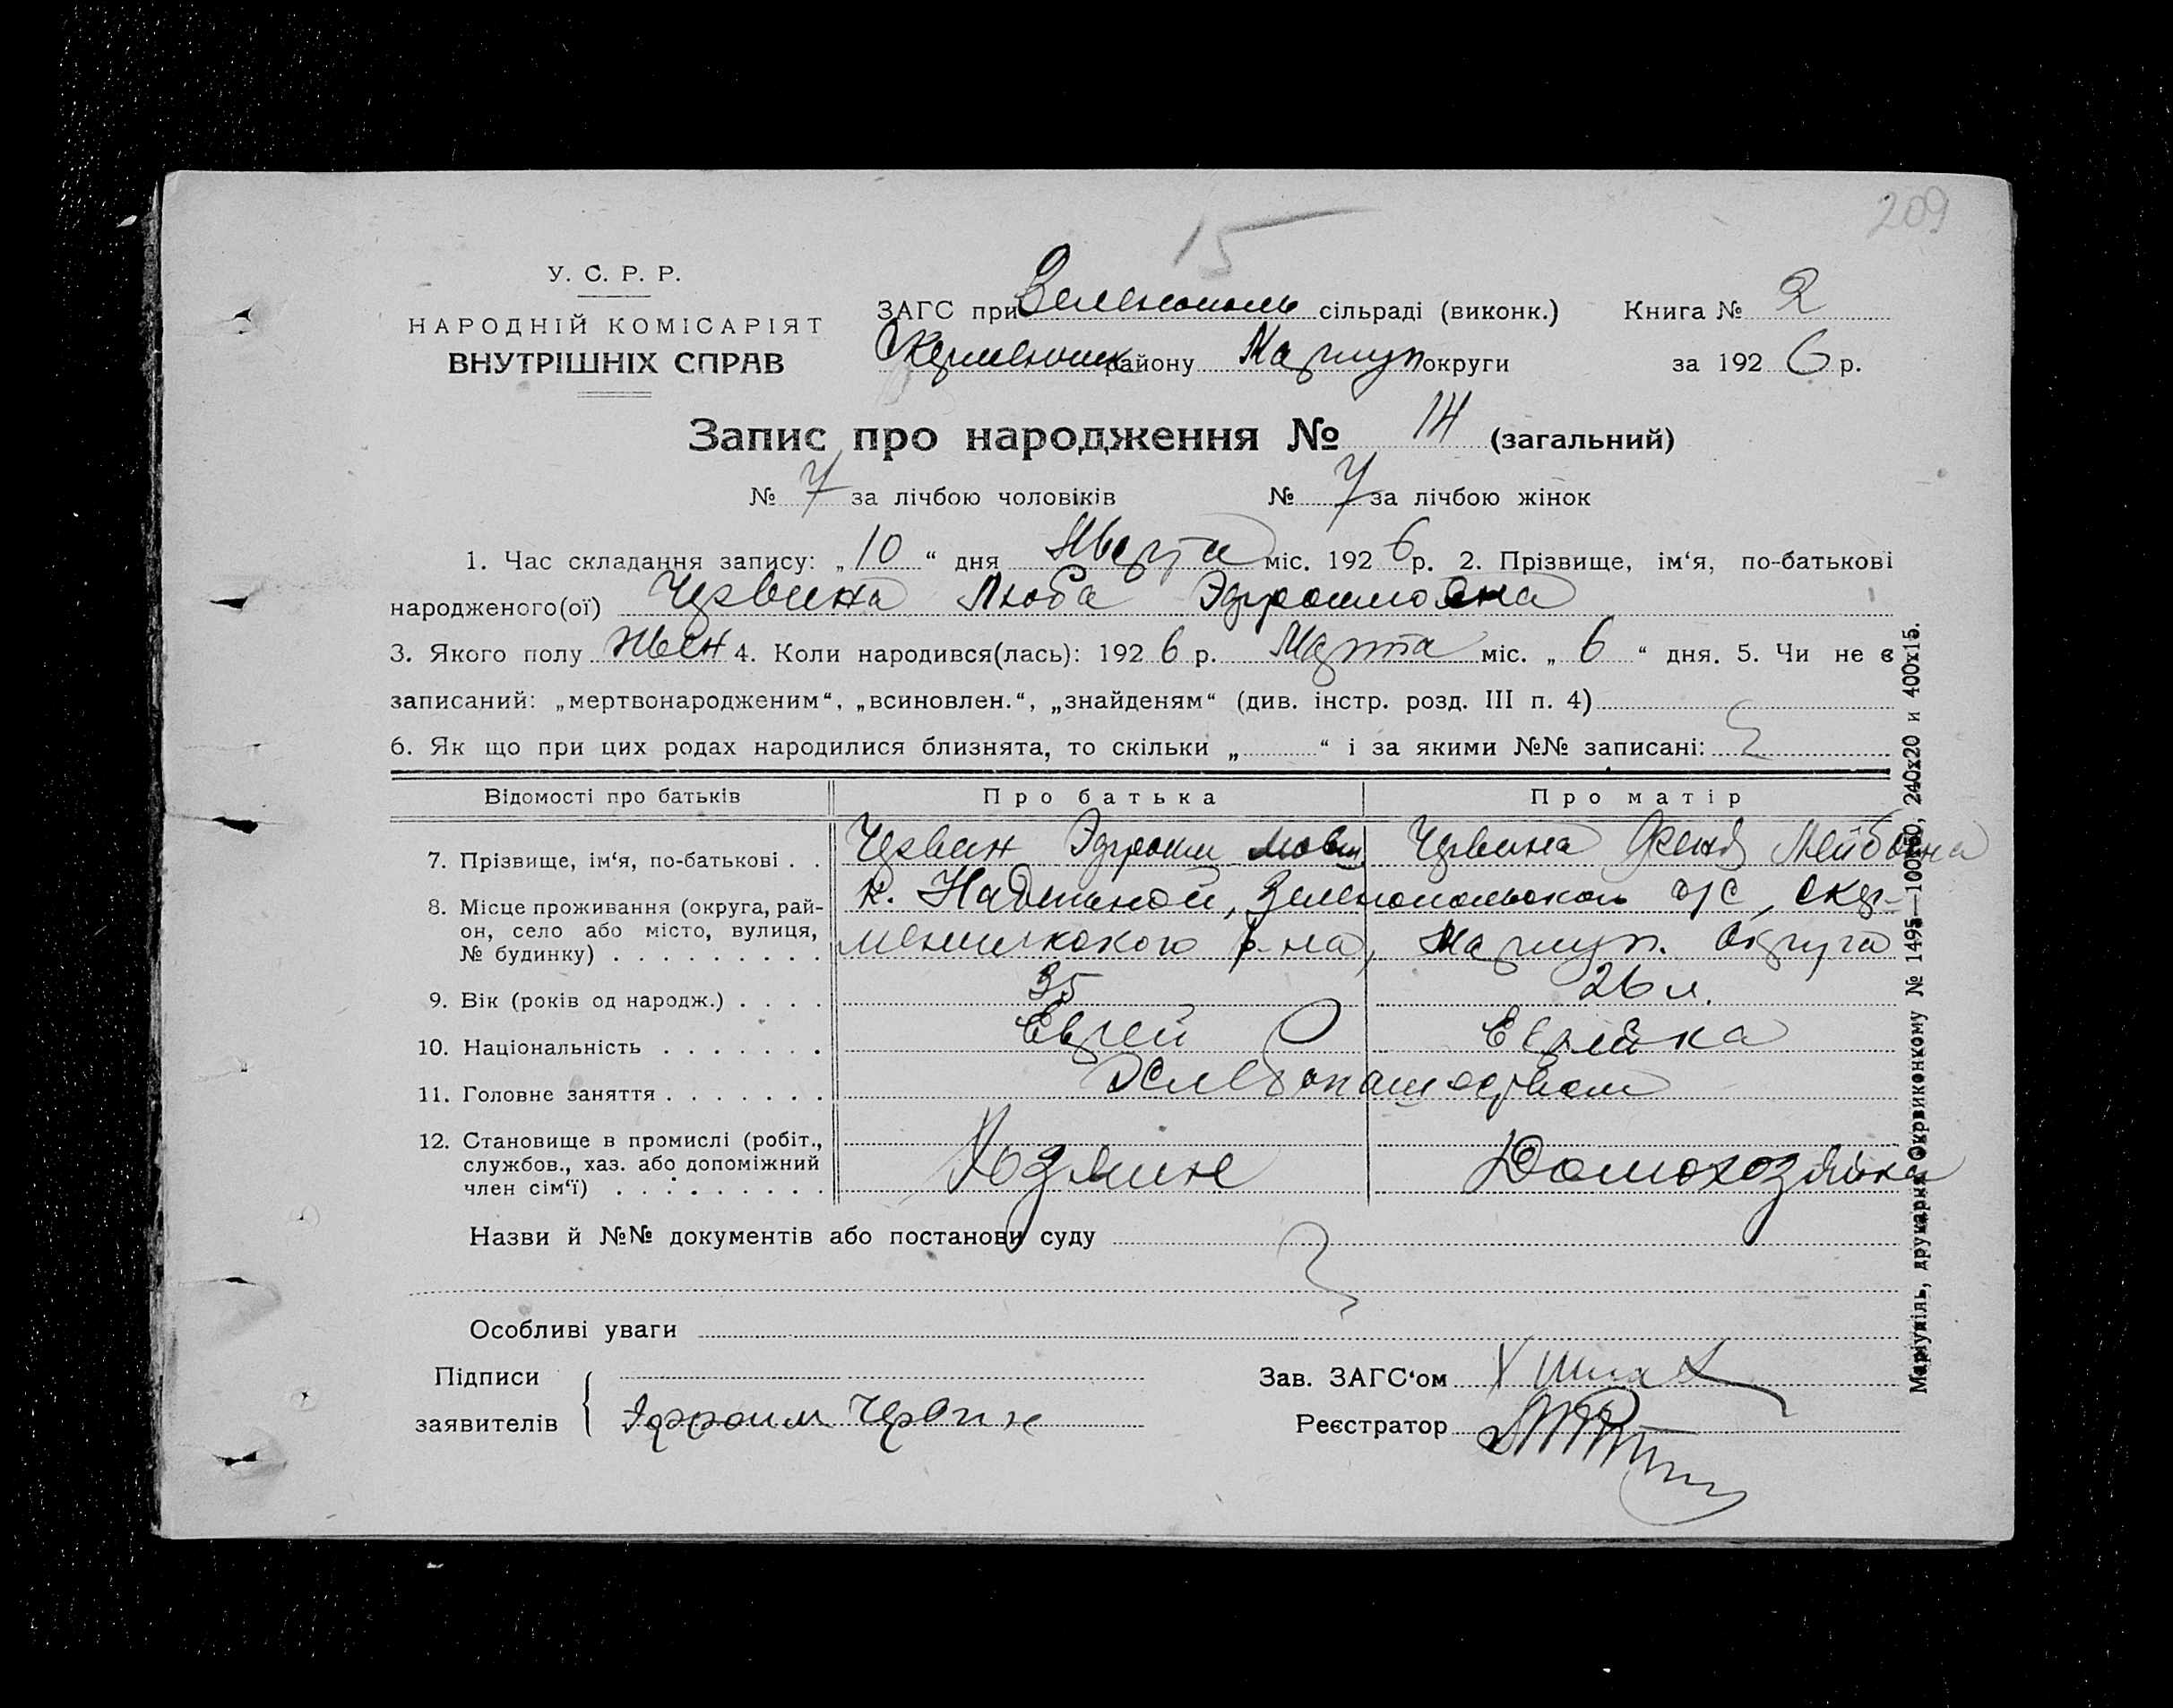 209
15
У. С. Р. Р.
НАРОДНІЙ КОМІСАРІЯТ
ВНУТРІШНІХ СПРАВ
ЗАГС при Зеленополь сільраді (виконк.) Книга № 2
району Мариуп округи за 192 6 р.
Запис про народження № 14 (загальний)
№ 7 за лічбою чоловіків № 7 за лічбою жінок
1. Час складання запису: „ 10 “ дня Марта міс. 192 6 р. 2. Прізвище, ім‘я, по-батькові
народженого(ої) Червина Люба
3. Якого полу жен 4. Коли народився(лась): 192 6 р. Марта міс. „ 6 “ дня. 5. Чи не є
записаний: „мертвонародженим“, „всиновлен.“, „знайденям“ (див. інстр. розд. III п. 4)
6. Як що при цих родах народилися близнята, то скільки „ “ і за якими №№ записані:
Відомості про батьків Про батька Про матір
7. Прізвище, ім‘я, по-батькові . . Червин Эфроим Мовш Червина
8. Місце проживання (округа, рай-
он, село або місто, вулиця,
№ будинку) . . . . . . . . .
к. Надежной, Зеленопольского с/с,
р-на, Мариуп. Округа
9. Вік (років од народж.) . . . . 35 26 л.
10. Національність . . . . . . . Еврей Еврейка
11. Головне заняття . . . . . . . Хлебопашеством
12. Становище в промислі (робіт.,
службов., хаз. або допоміжний
член сім‘ї) . . . . . . . . .
Хозяин Домохозяйка
Назви й №№ документів або постанови суду
Особливі уваги
Підписи
заявителів
Эфроим Червин
Зав. ЗАГС‘ом
Реєстратор
Маріупіль, друкарня Окрвиконкому № 1495—100х50, 240х20 и 400х15.